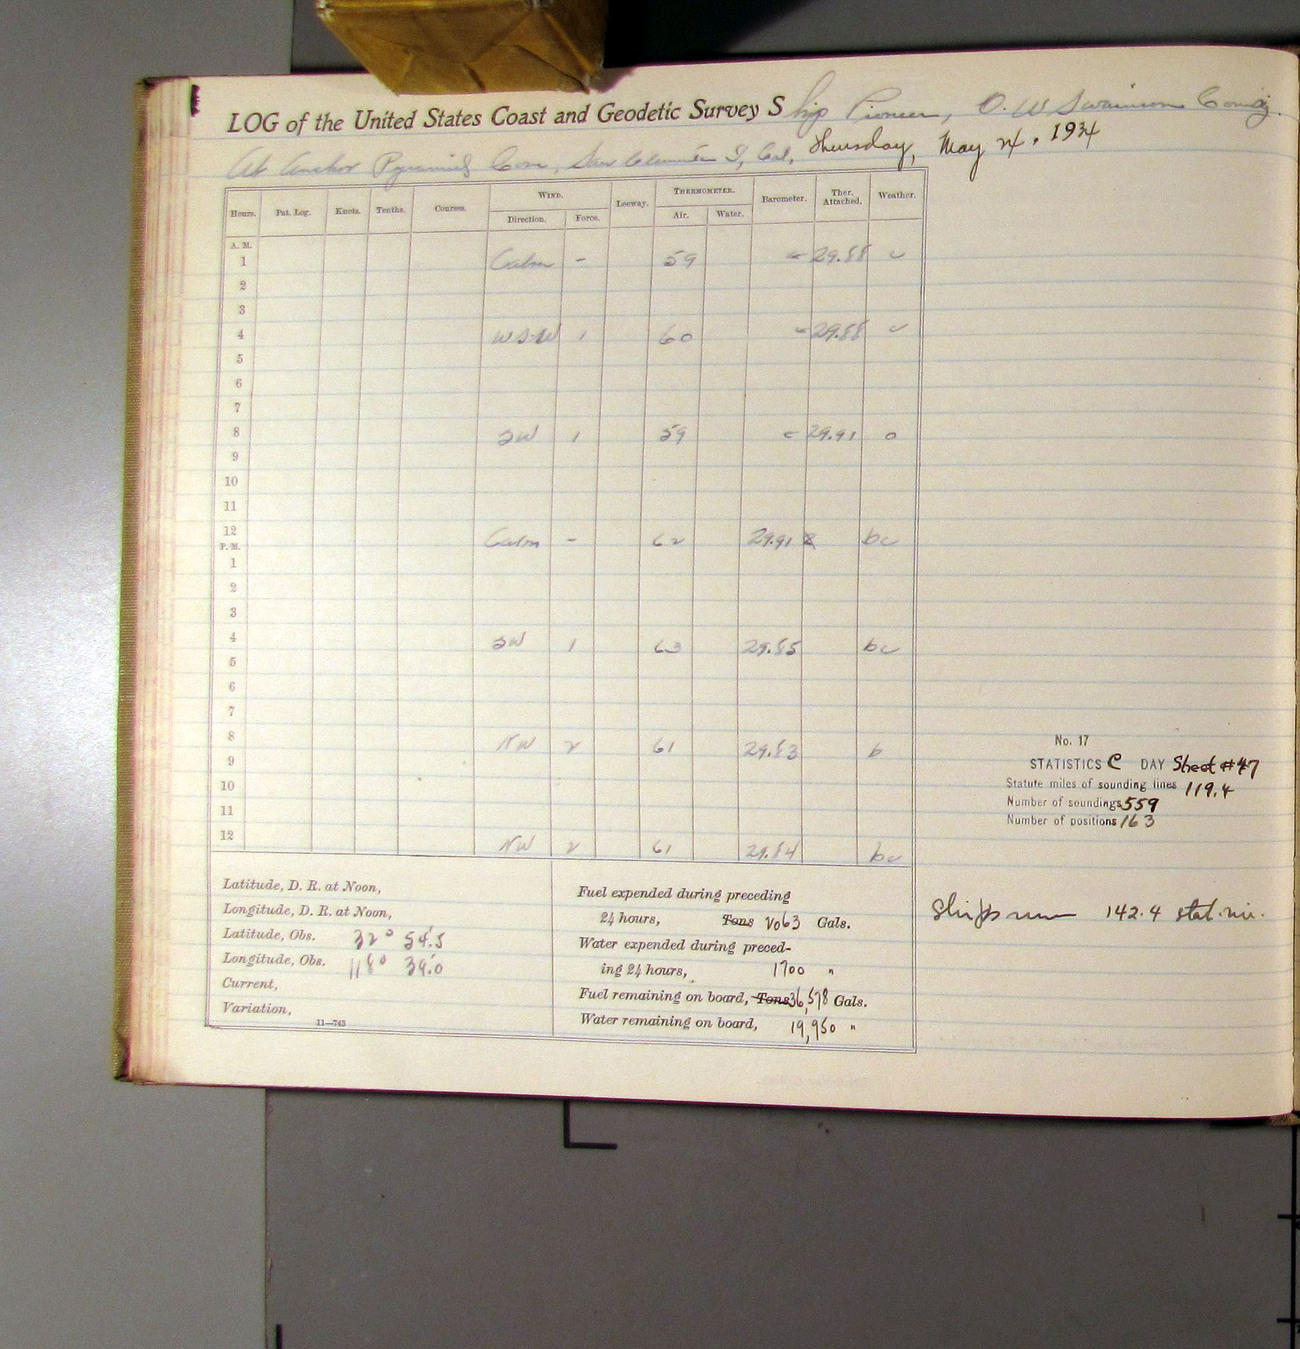 LOG of the United States Coast and Geodetic Survey Ship Pioneer, O. W. Swainson Comdg.
At Anchor Pyramid Cove, San Clemente I, Cal, Thursday, May 24, 1934
Hours. Pat. Log. Knots. Tenths. Courses. WIND. Direction. Force. Leeway. THERMOMETER. Air. Water. Barometer. Ther. Attached. Weather.
A. M.
1 Calm - 59 29.88 c
2
3
4 WSW 1 60 29.88 c
5
6
7
8 SW 1 59 29.91 o
9
10
11
12 Calm - 62 29.91 bc
P. M.
1
2
3
4 SW 1 63 29.85 bc
5
6
7
8 NW 2 61 29.83 b
9
10
11
12 NW 2 61 29.84 bc
No. 17
STATISTICS C DAY Sheet #47
Statute miles of sounding lines 119.4
Number of soundings 559
Number of positions 163
Ships run 142.4 stat. mi.
Latitude, D. R. at Noon,
Longitude, D. R. at Noon,
Latitude, Obs. 32° 54'.5
Longitude, Obs. 118° 34'.0
Current,
Variation,
11—743
Fuel expended during preceding
24 hours, Tons Gals.
Water expended during preced-
ing 24 hours, 1700 "
Fuel remaining on board, Tons 36,578 Gals.
Water remaining on board, 19,950 "